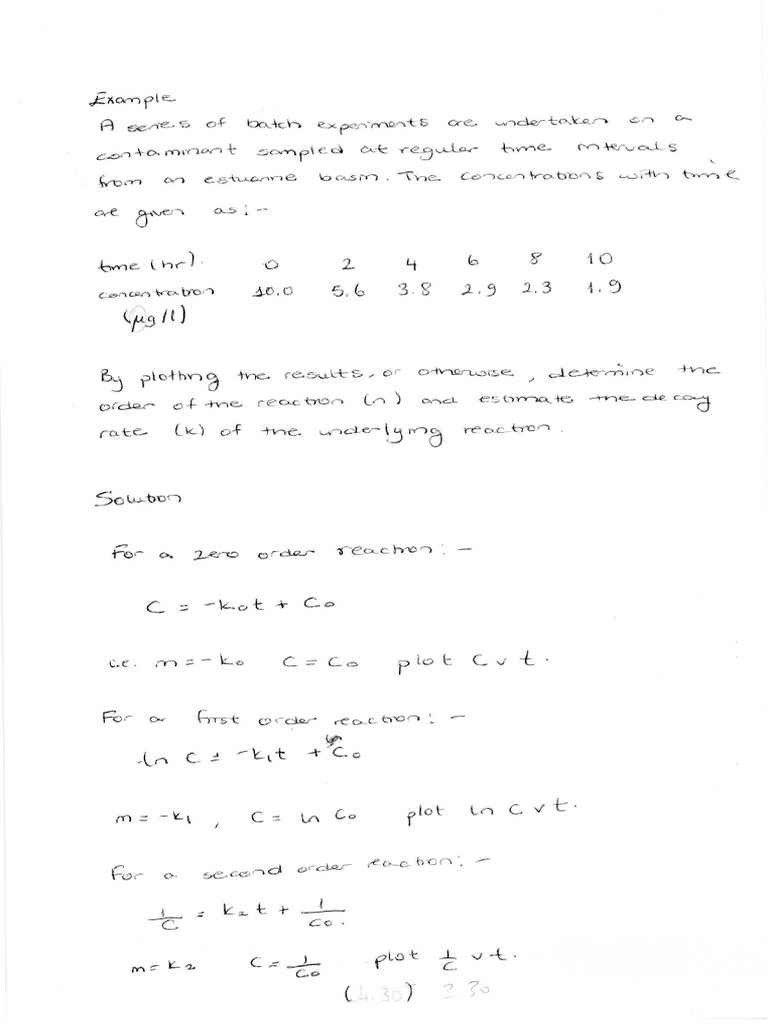 Example
A series of batch experiments are undertaken on a
contaminant sampled at regular time intervals
from an estuarine basin. The concentrations with time
are given as:-
time (hr). 0 2 4 6 8 10
concentration 10.0 5.6 3.8 2.9 2.3 1.9
(μg/l)
By plotting the results, or otherwise, determine the
order of the reaction (n) and estimate the decay
rate (k) of the underlying reaction.
Solution
For a zero order reaction:-
C = -k₀t + C₀
i.e. m = -k₀ C = C₀ plot C v t.
For a first order reaction:-
ln C = -k₁t + C₀
m = -k₁, C = ln C₀ plot ln C v t.
For a second order reaction:-
1/C = k₂t + 1/C₀.
m = k₂ C = 1/C₀ plot 1/C v t.
(4.30) 3.30